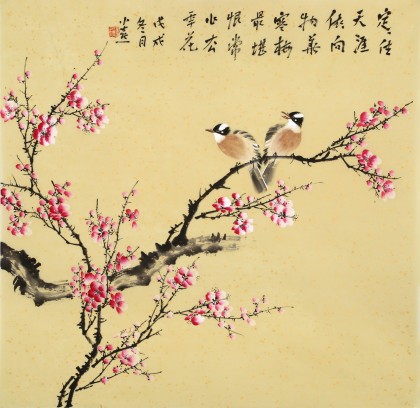 定住
天涯
依向
物華
寒梅
最堪
恨常
作去
年花
戊戌
冬月